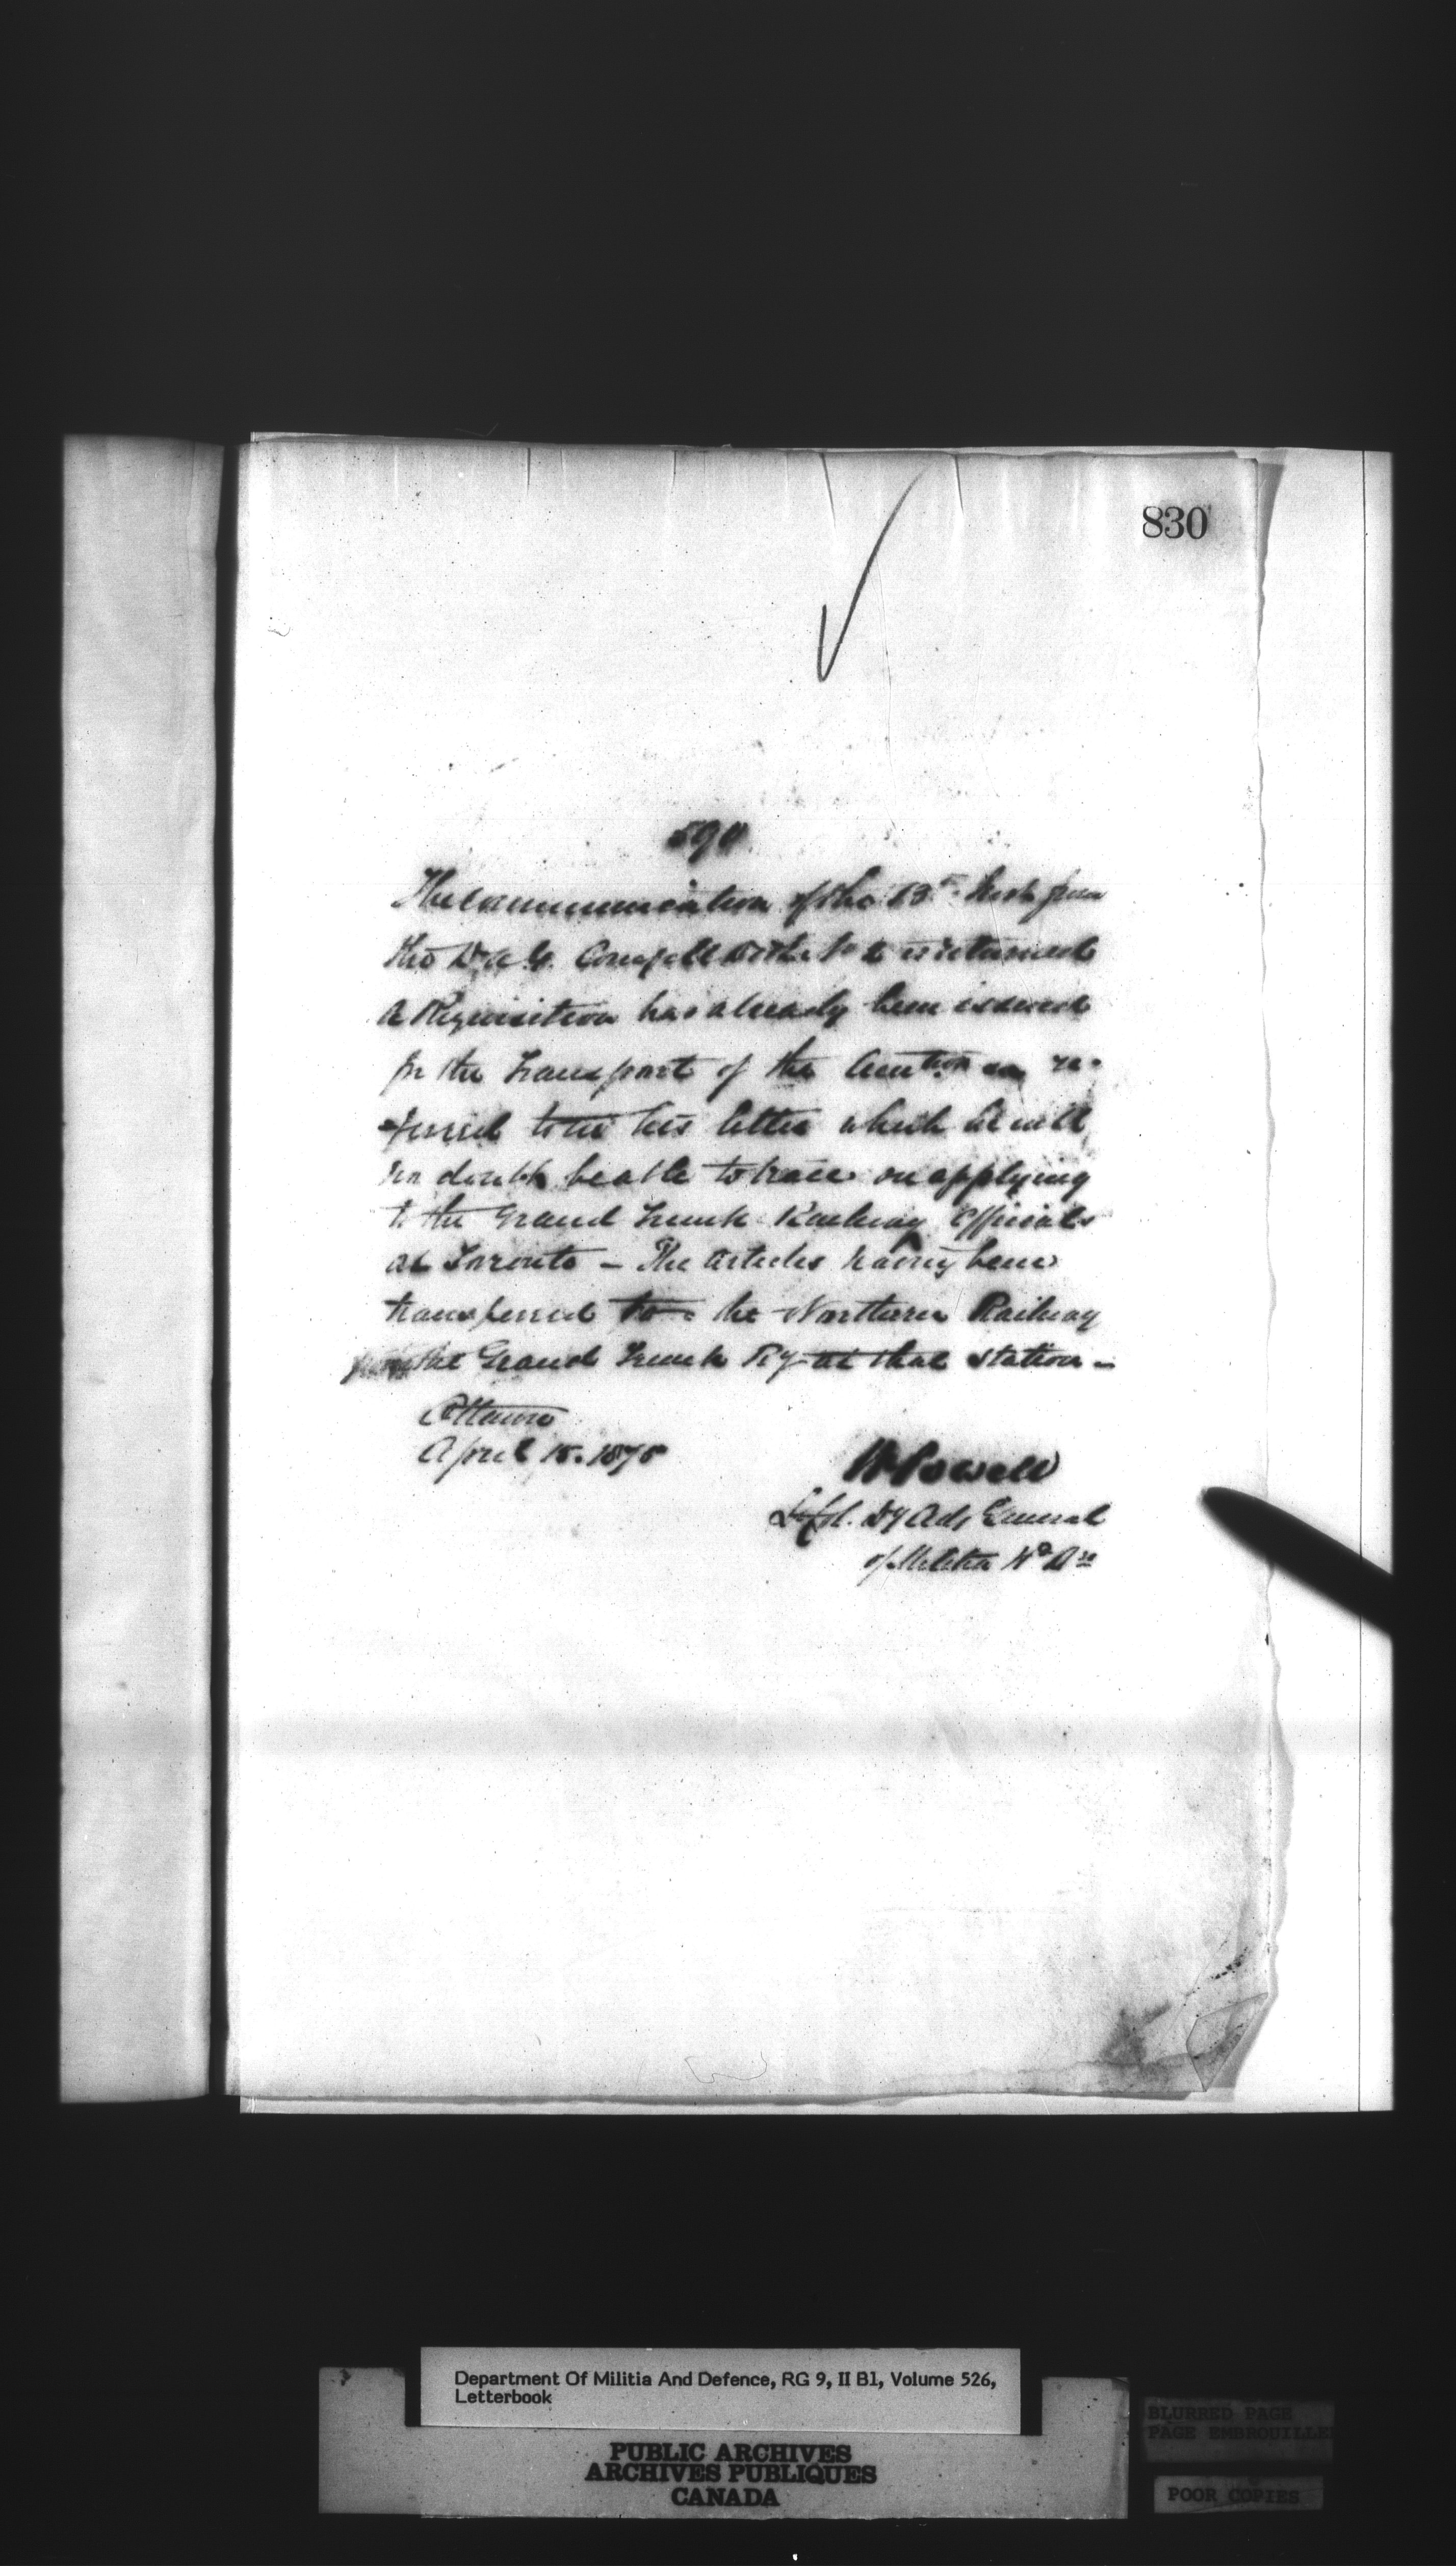 830
590
The communication of the 13th Inst from
the D. A. G. Comg Mil Dist No 2 is returned
A Requisition has already been issued
for the Transport of the Amtion re-
-ferred to in his letter which he will
no doubt be able to trace on applying
to the Grand Trunk Railway Officials
at Toronto - The articles having been
transferred to the Northern Railway
from the Grand Trunk Ry at that station -
Ottawa
April 15. 1875
W Powell
Lt Col. Dy Adj General
of Militia Hd Qrs
Department Of Militia And Defence, RG 9, II B1, Volume 526,
Letterbook
PUBLIC ARCHIVES
ARCHIVES PUBLIQUES
CANADA
BLURRED PAGE
PAGE EMBROUILLE
POOR COPIES